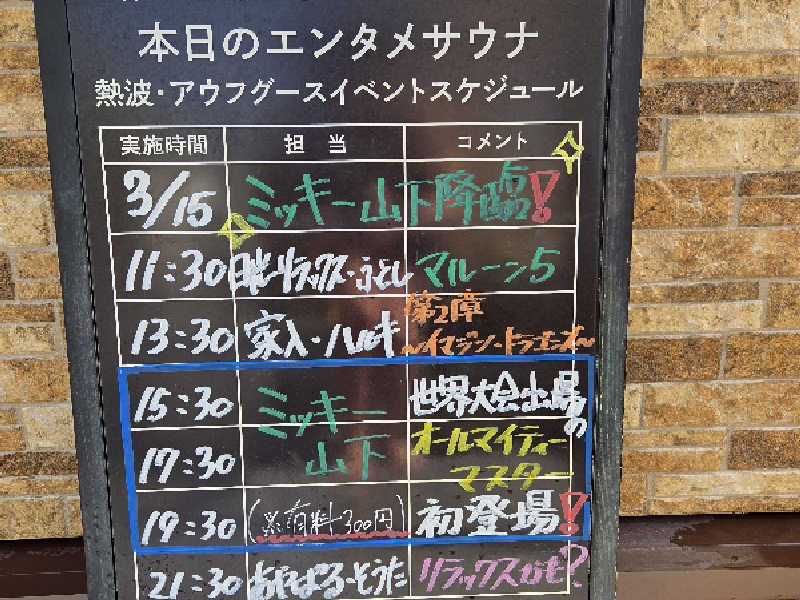 本日のエンタメサウナ
熱波・アウフグースイベントスケジュール
実施時間 担当 コメント
3/15 ミッキー山下降臨!
11:30 リラックス・ふとし マルーン5
13:30 家入・ハルキ 第2章
~イマジン・ドラゴンズ~
15:30 ミッキー 世界大会出場の
17:30 山下 オールマイティー
マスター
19:30 (※有料300円) 初登場!
21:30 おやぱる・そうた リラックスかも?